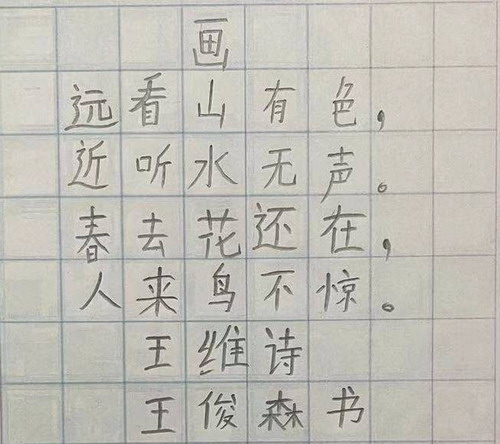 画
远看山有色，
近听水无声。
春去花还在，
人来鸟不惊。
王维诗
王俊森书